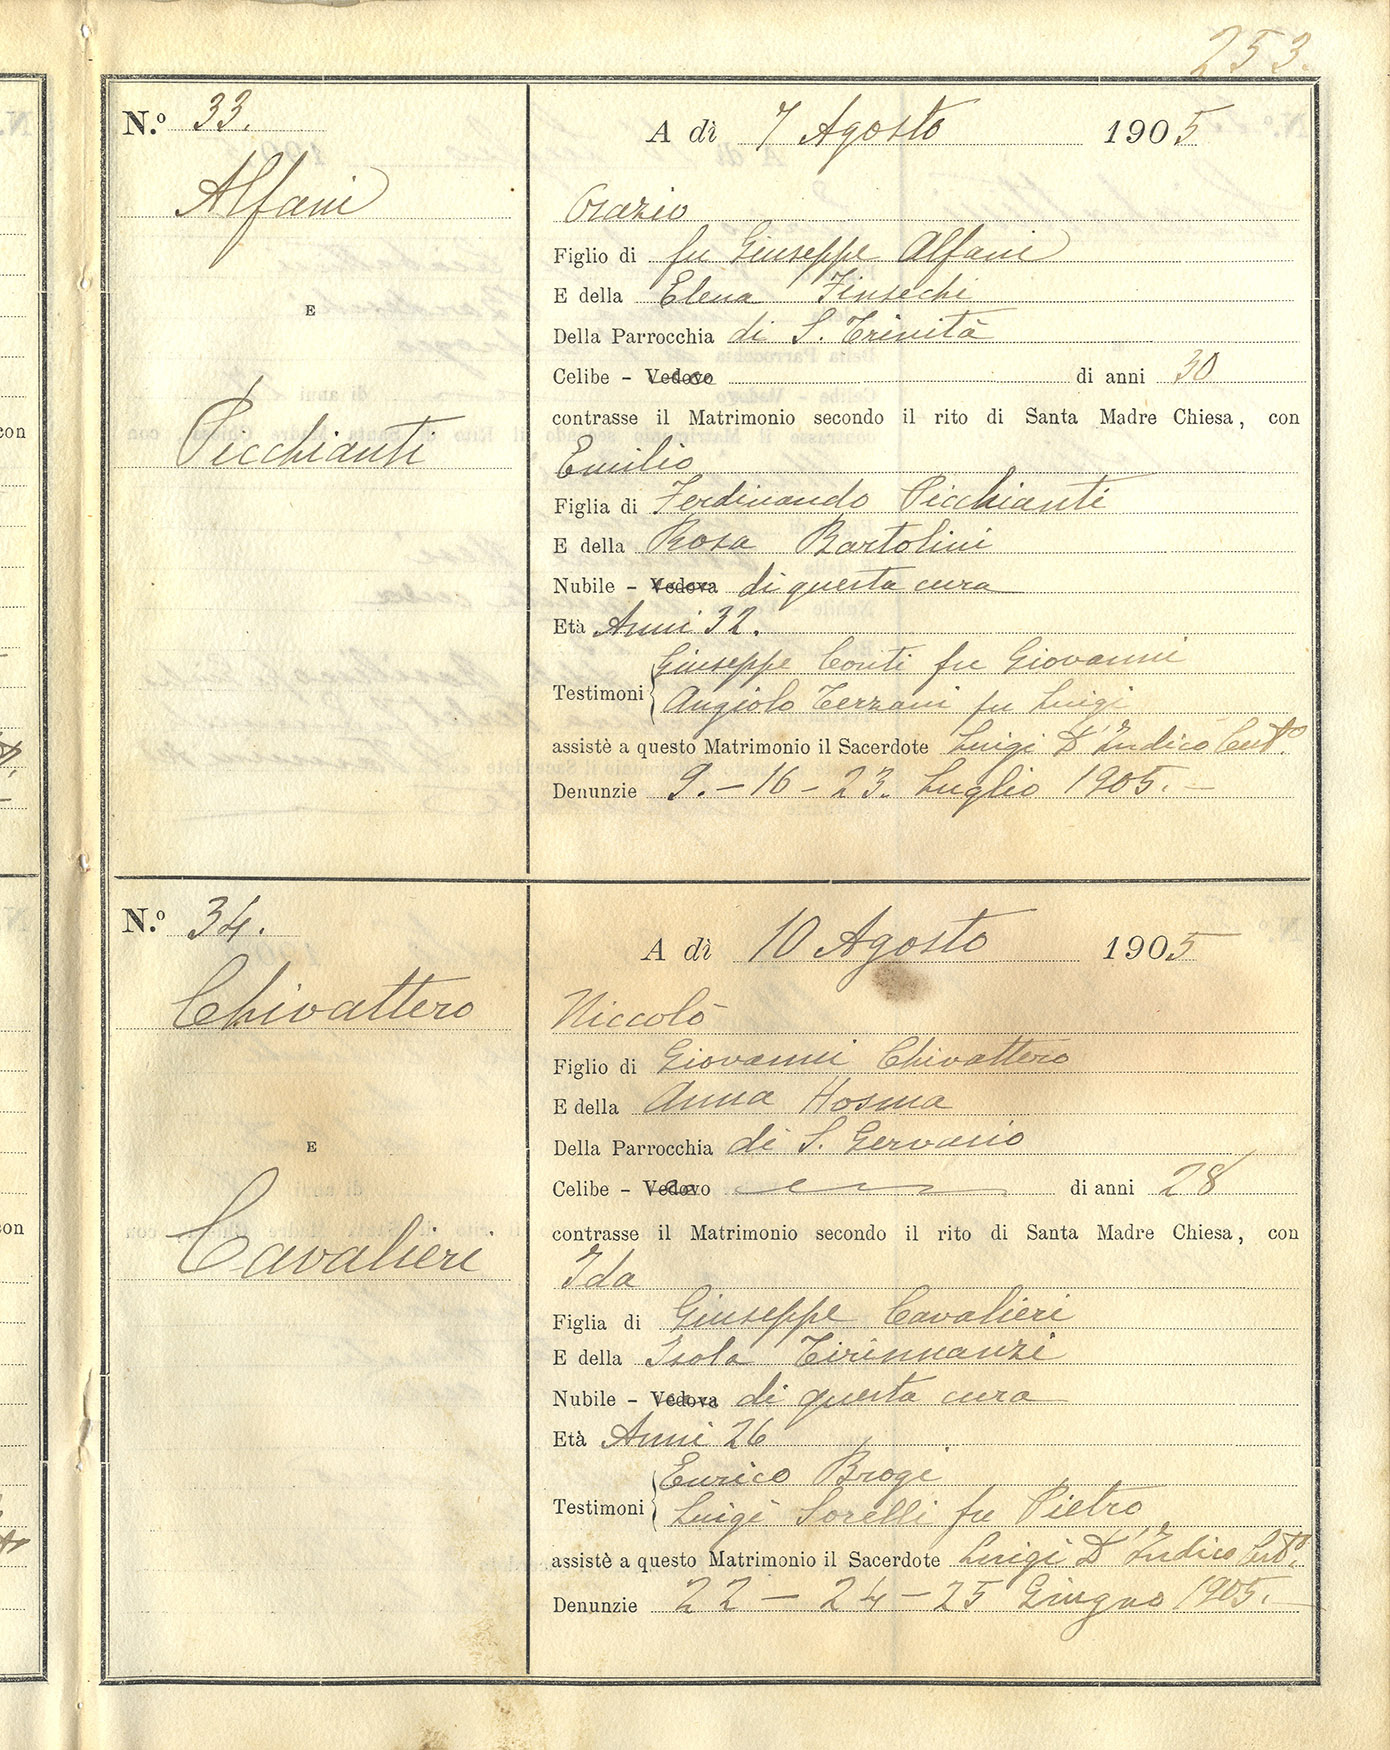 253.
N.º 33.
A dì 7 Agosto 1905
Alfani
Orazio
Figlio di fu Giuseppe Alfani
E
E della Elena Finsechi
Della Parrocchia di S. Trinità
Celibe – Vedovo di anni 30
contrasse il Matrimonio secondo il rito di Santa Madre Chiesa, con
con
Picchianti
Emilio
Figlia di Ferdinando Picchianti
E della Rosa Bartolini
Nubile – Vedova di questa cura
Età Anni 32.
Testimoni Giuseppe Conti fu Giovanni
Angiolo Terzani fu Luigi
assistè a questo Matrimonio il Sacerdote Luigi D'Indico
Denunzie 9. – 16 – 23. Luglio 1905. –
N.º 34.
A dì 10 Agosto 1905
Chivattero
Niccolò
Figlio di Giovanni Chivattero
E della Anna Hosma
E
Della Parrocchia di S. Gervasio
Celibe – Vedovo di anni 28
contrasse il Matrimonio secondo il rito di Santa Madre Chiesa, con
con
Cavalieri
Ida
Figlia di Giuseppe Cavalieri
E della Isola Tirinnanzi
Nubile – Vedova di questa cura
Età Anni 26
Testimoni Enrico Brogi
Luigi Sorelli fu Pietro
assistè a questo Matrimonio il Sacerdote Luigi D'Indico
Denunzie 22 – 24 – 25 Giugno 1905. –